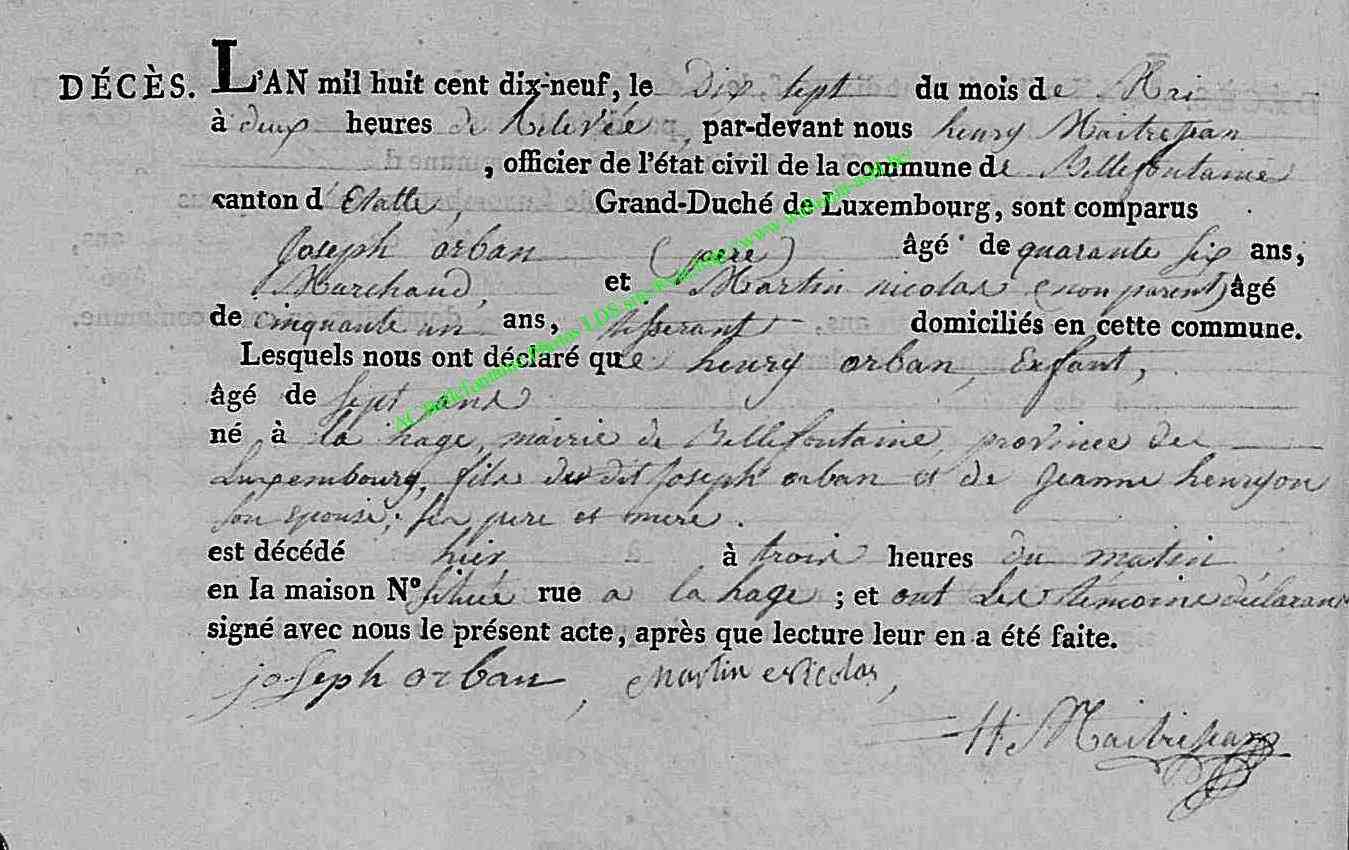 DÉCÈS. L'AN mil huit cent dix-neuf, le Dix sept du mois de Mai
à deux heures de Relevée, par-devant nous henry Maitrejean
, officier de l'état civil de la commune de Bellefontaine
canton d'Etalle, Grand-Duché de Luxembourg, sont comparus
Joseph orban (pere) âgé de quarante six ans,
Marchand, et Martin nicolas (non parent) âgé
de cinquante un ans, tisserant domiciliés en cette commune.
Lesquels nous ont déclaré que henry orban, Enfant,
âgé de sept ans
né à la hage, mairie de Bellefontaine, province de
Luxembourg, fils du dit Joseph orban et de Jeanne henryon
son epouse, ses pere et mere.
est décédé hier à trois heures du matin
en la maison N° située rue a la hage ; et ont les témoins déclarans
signé avec nous le présent acte, après que lecture leur en a été faite.
joseph orban, Martin Nicolas,
H. Maitrejean